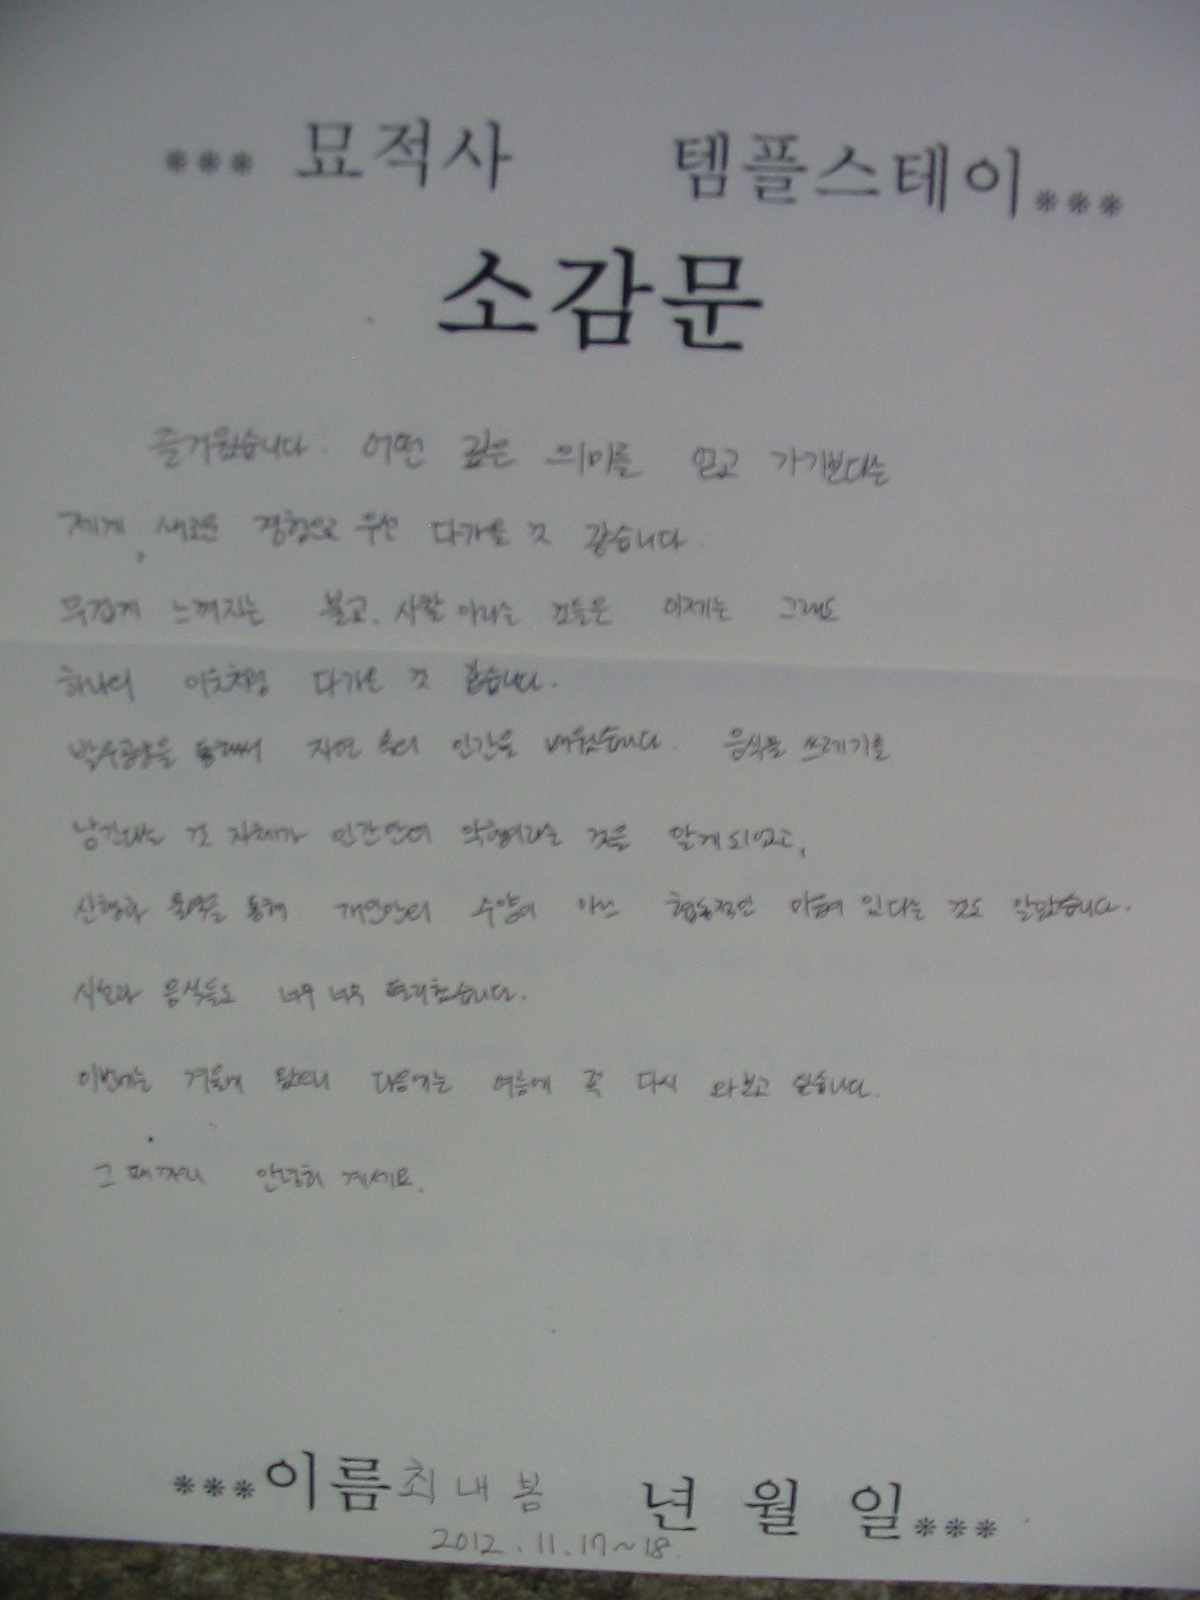 *** 묘적사 템플스테이***
소감문
즐거웠습니다. 어떤 깊은 의미를 얻고 가기보다는
제게, 새로운 경험으로 우선 다가온 것 같습니다.
무겁게 느껴지는 불교, 사찰 이라는 것들은 이제는 그래도
하나의 이웃처럼 다가온 것 같습니다.
발우공양을 통해서 자연 속의 인간을 배웠습니다. 음식물 쓰레기를
남긴다는 것 자체가 인간만의 악행이라는 것을 알게되었고,
산행과 울력을 통해 개인만의 수양이 아닌 협동적인 마음이 있다는 것도 알았습니다.
시설과 음식들도 너무 너무 편리했습니다.
이번에는 겨울에 왔으니 다음에는 여름에 꼭 다시 와보고 싶습니다.
그 때까지 안녕히 계세요.
***이름 최 내 봄 년 월 일***
2012. 11. 17~18